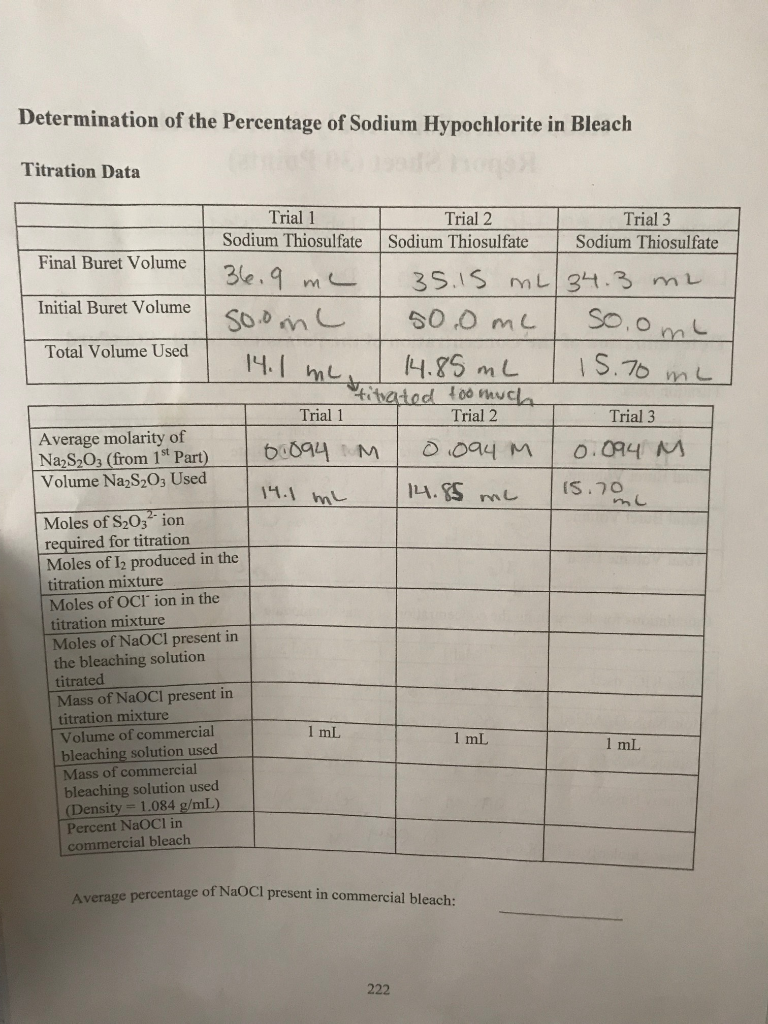 Determination of the Percentage of Sodium Hypochlorite in Bleach
Titration Data
Trial 1 Trial 2 Trial 3
Sodium Thiosulfate Sodium Thiosulfate Sodium Thiosulfate
Final Buret Volume 36.9 mL 35.15 mL 34.3 mL
Initial Buret Volume 50.0 mL 50.0 mL 50.0 mL
Total Volume Used 14.1 mL 14.85 mL 15.70 mL
↓ titrated too much
Trial 1 Trial 2 Trial 3
Average molarity of
Na₂S₂O₃ (from 1st Part) 0.094 M 0.094 M 0.094 M
Volume Na₂S₂O₃ Used 14.1 mL 14.85 mL 15.70 mL
Moles of S₂O₃²⁻ ion
required for titration
Moles of I₂ produced in the
titration mixture
Moles of OCl⁻ ion in the
titration mixture
Moles of NaOCl present in
the bleaching solution
titrated
Mass of NaOCl present in
titration mixture
Volume of commercial
bleaching solution used 1 mL 1 mL 1 mL
Mass of commercial
bleaching solution used
(Density = 1.084 g/mL)
Percent NaOCl in
commercial bleach
Average percentage of NaOCl present in commercial bleach:
222